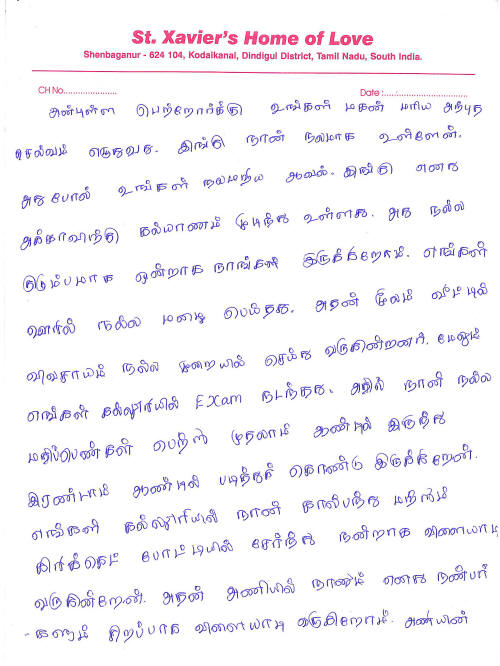 St. Xavier's Home of Love
Shenbaganur - 624 104, Kodaikanal, Dindigul District, Tamil Nadu, South India.
CH No.....................
Date :..............................
அன்புள்ள பெற்றோர்க்கு உங்கள் மகன் மரிய அற்புத
செல்வம் எழுதுவது. இங்கு நான் நலமாக உள்ளேன்.
அது போல் உங்கள் நலமறிய ஆவல். இங்கு எனது
அக்காவிற்கு கல்யாணம் முடிந்து உள்ளது. அது நல்ல
குடும்பமாக ஒன்றாக நாங்கள் இருக்கிறோம். எங்கள்
ஊரில் நல்ல மழை பெய்தது. அதன் மூலம் வீட்டில்
விவசாயம் நல்ல முறையில் செய்து வருகின்றனர். மேலும்
எங்கள் கல்லூரியில் Exam நடந்தது. அதில் நான் நல்ல
மதிப்பெண்கள் பெற்று முதலாம் ஆண்டில் இருந்து
இரண்டாம் ஆண்டில் படித்துக் கொண்டு இருக்கிறேன்.
எங்கள் கல்லூரியில் நான் கால்பந்து மற்றும்
கிரிக்கெட் போட்டியில் சேர்ந்து நன்றாக விளையாடி
வருகின்றேன். அதன் அணியில் நானும் எனது நண்பர்
- களும் சிறப்பாக விளையாடி வருகிறோம்.